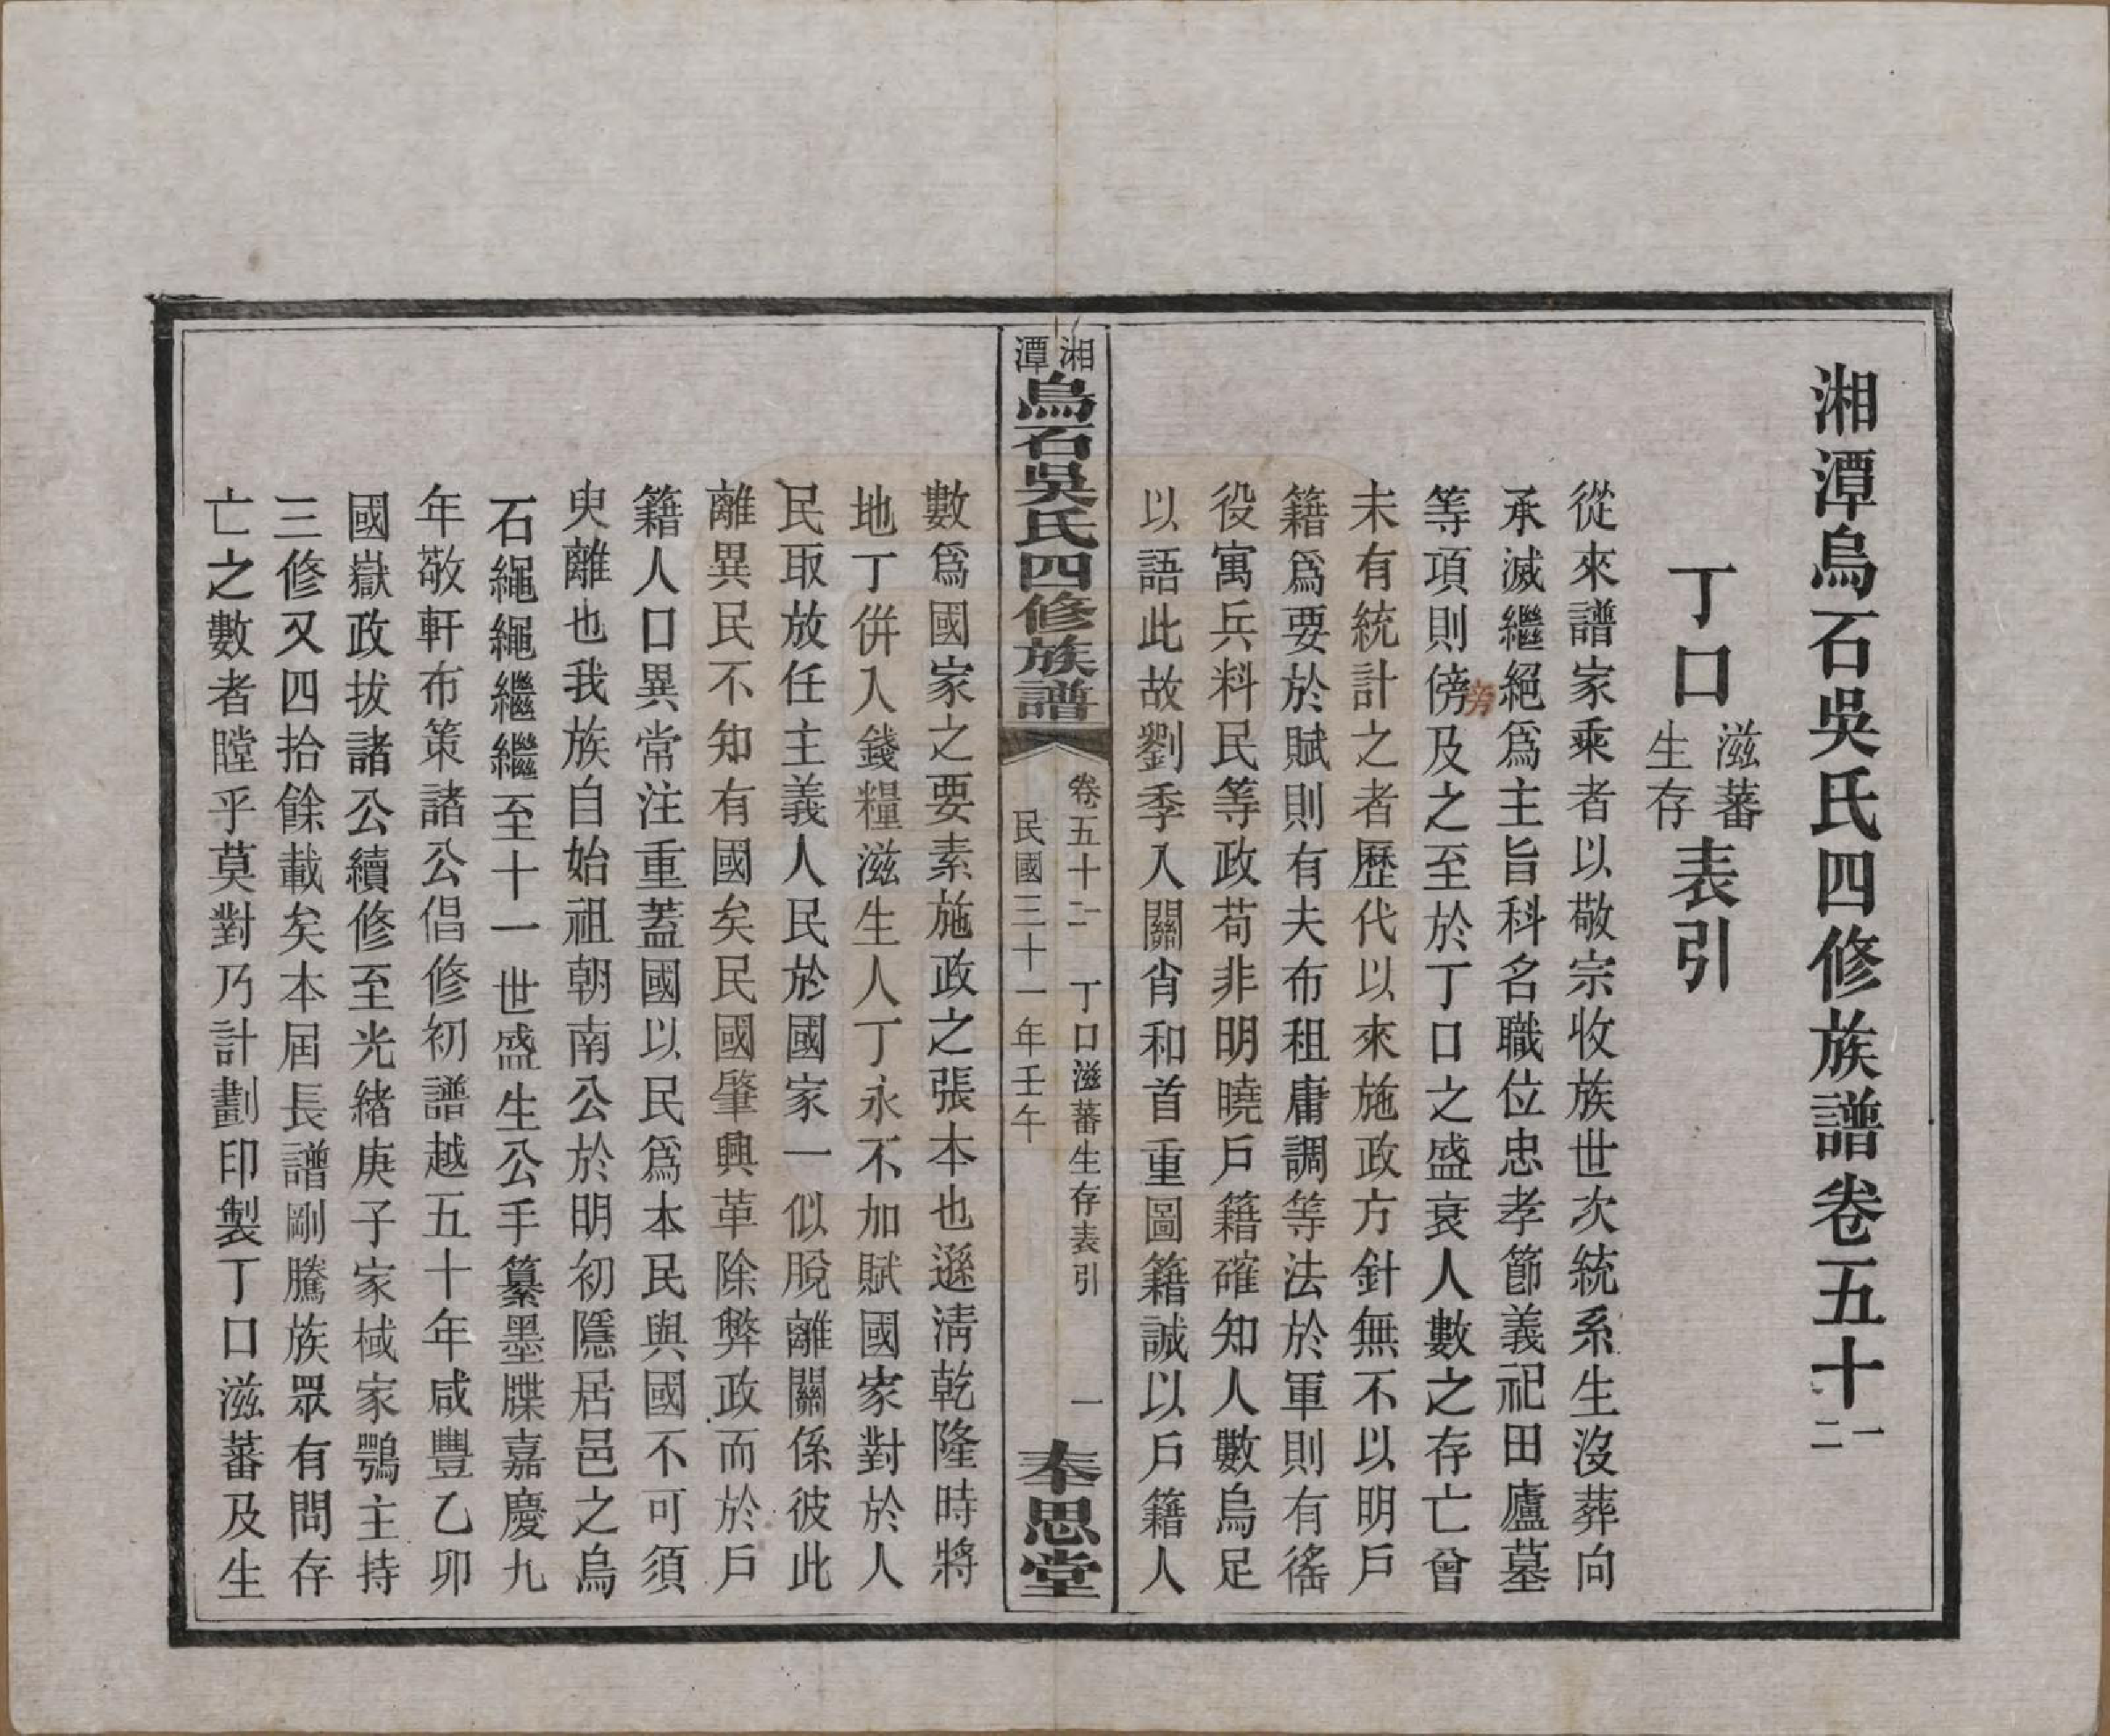 湘潭烏石吳氏四修族譜卷五十二
丁口滋蕃生存表引
從來譜家乘者以敬宗收族世次統系生沒葬向
承滅繼絕爲主旨科名職位忠孝節義祀田廬墓
等項則傍旁及之至於丁口之盛衰人數之存亡曾
未有統計之者歷代以來施政方針無不以明戶
籍爲要於賦則有夫布租庸調等法於軍則有徭
役寓兵料民等政苟非明曉戶籍確知人數烏足
以語此故劉季入關肯和首重圖籍誠以戶籍人
湘潭烏石吳氏四修族譜 卷五十二 丁口滋蕃生存表引 一
民國三十一年壬午
奉思堂
數爲國家之要素施政之張本也遜清乾隆時將
地丁併入錢糧滋生人丁永不加賦國家對於人
民取放任主義人民於國家一似脫離關係彼此
離異民不知有國矣民國肇興革除弊政而於戶
籍人口異常注重蓋國以民爲本民與國不可須
臾離也我族自始祖朝南公於明初隱居邑之烏
石繩繩繼繼至十一世盛生公手纂墨牒嘉慶九
年敬軒布策諸公倡修初譜越五十年咸豐乙卯
國嶽政拔諸公續修至光緒庚子家棫家鶚主持
三修又四拾餘載矣本屆長譜剛騰族眾有問存
亡之數者瞠乎莫對乃計劃印製丁口滋蕃及生